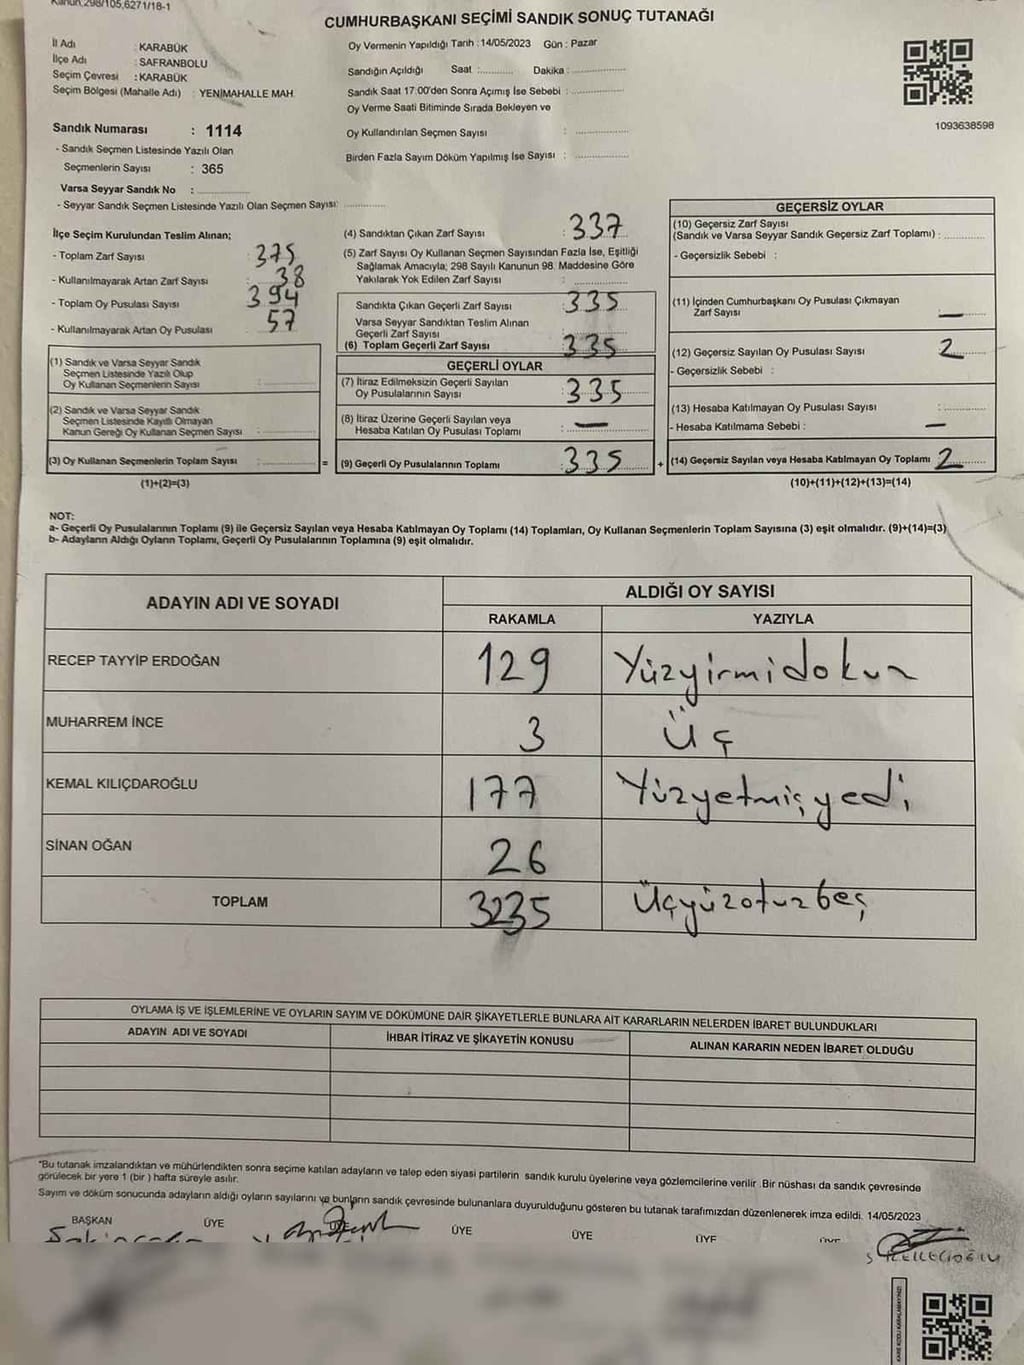 Kanun,298/105,6271/18-1
CUMHURBAŞKANI SEÇİMİ SANDIK SONUÇ TUTANAĞI
İl Adı : KARABÜK
İlçe Adı : SAFRANBOLU
Seçim Çevresi : KARABÜK
Seçim Bölgesi (Mahalle Adı) : YENİMAHALLE MAH.
Oy Vermenin Yapıldığı Tarih : 14/05/2023 Gün : Pazar
Sandığın Açıldığı Saat :............ Dakika :..................
Sandık Saat 17:00'den Sonra Açımış İse Sebebi :.................
Oy Verme Saati Bitiminde Sırada Bekleyen ve
Oy Kullandırılan Seçmen Sayısı : .................
Birden Fazla Sayım Döküm Yapılmış İse Sayısı : .................
1093638598
Sandık Numarası : 1114
- Sandık Seçmen Listesinde Yazılı Olan
Seçmenlerin Sayısı : 365
Varsa Seyyar Sandık No : .................
- Seyyar Sandık Seçmen Listesinde Yazılı Olan Seçmen Sayısı: .............
İlçe Seçim Kurulundan Teslim Alınan;
- Toplam Zarf Sayısı : 375
- Kullanılmayarak Artan Zarf Sayısı : 38
- Toplam Oy Pusulası Sayısı : 394
- Kullanılmayarak Artan Oy Pusulası : 57
(1) Sandık ve Varsa Seyyar Sandık
Seçmen Listesinde Yazılı Olup
Oy Kullanan Seçmenlerin Sayısı : .................
(2) Sandık ve Varsa Seyyar Sandık
Seçmen Listesinde Kayıtlı Olmayan
Kanun Gereği Oy Kullanan Seçmen Sayısı : .................
(3) Oy Kullanan Seçmenlerin Toplam Sayısı : ................. =
(1)+(2)=(3)
(4) Sandıktan Çıkan Zarf Sayısı : 337
(5) Zarf Sayısı Oy Kullanan Seçmen Sayısından Fazla İse, Eşitliği
Sağlamak Amacıyla; 298 Sayılı Kanunun 98. Maddesine Göre
Yakılarak Yok Edilen Zarf Sayısı : .................
Sandıkta Çıkan Geçerli Zarf Sayısı : 335
Varsa Seyyar Sandıktan Teslim Alınan
Geçerli Zarf Sayısı : .................
(6) Toplam Geçerli Zarf Sayısı : 335
GEÇERLİ OYLAR
(7) İtiraz Edilmeksizin Geçerli Sayılan
Oy Pusulalarının Sayısı : 335
(8) İtiraz Üzerine Geçerli Sayılan veya
Hesaba Katılan Oy Pusulası Toplamı : —
(9) Geçerli Oy Pusulalarının Toplamı : 335 +
GEÇERSİZ OYLAR
(10) Geçersiz Zarf Sayısı
(Sandık ve Varsa Seyyar Sandık Geçersiz Zarf Toplamı) : .............
- Geçersizlik Sebebi :
(11) İçinden Cumhurbaşkanı Oy Pusulası Çıkmayan
Zarf Sayısı : —
(12) Geçersiz Sayılan Oy Pusulası Sayısı : 2
- Geçersizlik Sebebi :
(13) Hesaba Katılmayan Oy Pusulası Sayısı : .............
- Hesaba Katılmama Sebebi : —
(14) Geçersiz Sayılan veya Hesaba Katılmayan Oy Toplamı : 2
(10)+(11)+(12)+(13)=(14)
NOT:
a- Geçerli Oy Pusulalarının Toplamı (9) ile Geçersiz Sayılan veya Hesaba Katılmayan Oy Toplamı (14) Toplamları, Oy Kullanan Seçmenlerin Toplam Sayısına (3) eşit olmalıdır. (9)+(14)=(3)
b- Adayların Aldığı Oyların Toplamı, Geçerli Oy Pusulalarının Toplamına (9) eşit olmalıdır.
ADAYIN ADI VE SOYADI ALDIĞI OY SAYISI
RAKAMLA YAZIYLA
RECEP TAYYİP ERDOĞAN 129 Yüzyirmidokuz
MUHARREM İNCE 3 Üç
KEMAL KILIÇDAROĞLU 177 Yüzyetmişyedi
SİNAN OĞAN 26
TOPLAM 3235 Üçyüzotuzbeş
OYLAMA İŞ VE İŞLEMLERİNE VE OYLARIN SAYIM VE DÖKÜMÜNE DAİR ŞİKAYETLERLE BUNLARA AİT KARARLARIN NELERDEN İBARET BULUNDUKLARI
ADAYIN ADI VE SOYADI İHBAR İTİRAZ VE ŞİKAYETİN KONUSU ALINAN KARARIN NEDEN İBARET OLDUĞU
*Bu tutanak imzalandıktan ve mühürlendikten sonra seçime katılan adayların ve talep eden siyasi partilerin sandık kurulu üyelerine veya gözlemcilerine verilir. Bir nüshası da sandık çevresinde
görülecek bir yere 1 (bir) hafta süreyle asılır.
Sayım ve döküm sonucunda adayların aldığı oyların sayılarını ve bunların sandık çevresinde bulunanlara duyurulduğunu gösteren bu tutanak tarafımızdan düzenlenerek imza edildi. 14/05/2023
BAŞKAN ÜYE ÜYE ÜYE ÜYE ÜYE ÜYE